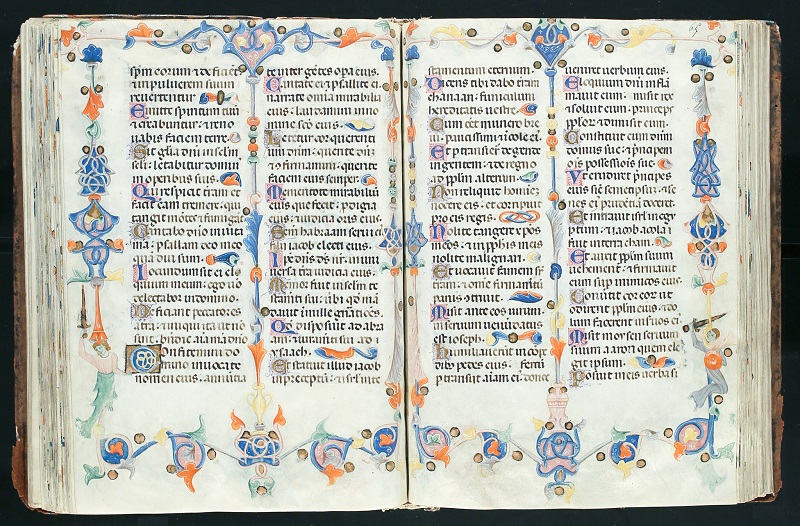 spm eorum ⁊ deficiet
in puluerem suum
reuertentur
Emitte spiritum tuū
⁊ creabuntur: ⁊ reno
uabis faciem terre
Sit glia dn̄i in seculū
seli: letabitur domin
in operibus suis
Qui respicit terram et
facit eam tremere: qui
tangit mōtes ⁊ fumigāt
Cantabo dn̄o in uita
mea: psallam deo meo
Iocundum sit ei elo
quium meum: ego uō
delectabor in domino
Deficiant peccatores
Confitemini do
mino ⁊ inuocate
nomen eius: annūtia
te inter gētes opa eius.
Cantate ei ⁊ psallite ei:
narrate omnia mirabilia
eius: laudamini in no
mine sc̄o eius.
Letetur cor querenti
um dominum: querite dn̄m
⁊ confirmamini: querite
faciem eius semper.
Mementote mirabiliū
eius que fecit: prodigia
eius: ⁊ iudicia oris eius.
Semen habraam serui ei
filii iacob electi eius.
Ipse dn̄s ds̄ nr̄: in uni
uersa terra iudicia eius.
Memor fuit in selm te
stamti sui: ūbi qd̄ mā
dauit in mille gn̄atiōes.
Quod disposuit ad abra
am: ⁊ iuramti sui ad
ysaach.
Et statuit illud iacob
in preceptū: ⁊ isrl in te
stamentum eternum.
Dicens tibi dabo terram
chanaan: funiculum
hereditatis uestre
Cum eēt numero bre
ui: paucissimi ⁊ icole eī
Et ptransiert de gente
in gentem: ⁊ de regno
ad pplm alterum.
Non reliquit hominē
nocere eis: ⁊ corripuit
pro eis reges.
Nolite tangere xp̄os
meos: ⁊ in pph̄is meis
nolite malignari.
Et uocauit famem sr̄
terram: ⁊ omne firmamētū
panis otriuit.
Misit ante eos uirum:
in seruum uenūdatus
est ioseph.
Humiliauerūt in cōpe
dib pedes eius: ferrū
ptransiit aīam ei: donec
ueniret uerbum eius.
Eloquium dn̄i inflā
mauit eum: misit rex
⁊ soluit eum: princeps
pplor ⁊ dimisit eum.
Constituit eum dnm̄
domus sue: ⁊ pncipem
oīs possessiōis sue.
Vt erudiret pncipes
eius sic semetipsū: ⁊ se
nes ei prudētiā doceret.
Et intrauit isrl in egy
ptum: ⁊ iacob acola
fuit in terra cham.
Et auxit pplm suum
uehement: ⁊ firmauit
eum sup inimicos eius.
Conuertit cor eor ut
odirent pplm eius: ⁊ do
lum facerent in suos ei
Misit moysen seruum
suum: aaron quem ele
git ipsum.
Posuit in eis uerba si